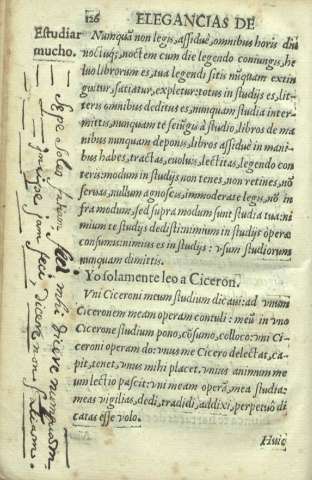 126 ELEGANCIAS DE
Estudiar
mucho.
Nunquã non legis, assiduè, omnibus horis diu
noctuq́; noctem cum die legendo coniungis, he
luo librorum es, tua legendi sitis nũquam extin
guitur, satiatur, expletur: totus in studijs es, lit-
teris omnibus deditus es, nunquam studia inter-
mittis, nunquam te seiũgis à studio, libros de ma
nibus nunquam deponis, libros assiduè in mani
bus habes, tractas, euoluis, lectitas, legendo con
teris: modum in studijs non tenes, non retines, nõ
seruas, nullum agnoscis, immoderatè legis, nõ in
fra modum, sed supra modum sunt studia tua: ni
mium te studijs dedisti: nimium in studijs operæ
consumis: nimius es in studijs: vsum studiorum
nunquam dimittis.
Yo solamente leo a Cicerón.
Vni Ciceroni meum studium dicaui: ad vnum
Ciceronem meam operam contuli: meũ in vno
Cicerone studium pono, cõsumo, colloco: vni Ci-
ceroni operam do: vnus me Cicero delectat, ca-
pit, tenet, vnus mihi placet, vnius animum me
um lectio pascit: vni meam operã, mea studia:
meas vigilias, dedi, tradidi, addixi, perpetuò di
catas esse volo.
Huic
mihi dicere nunquam
dicere non